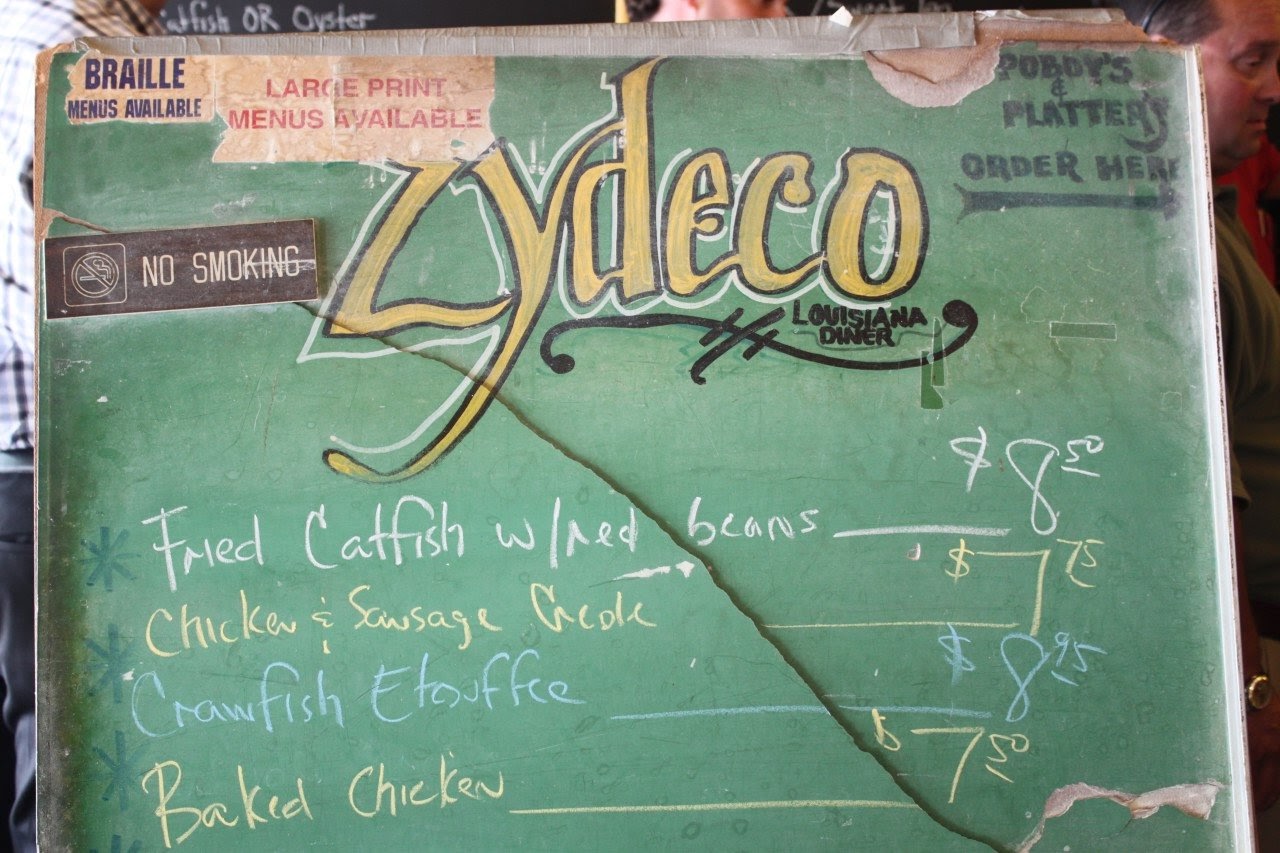 atfish OR Oyster
BRAILLE
MENUS AVAILABLE
LARGE PRINT
MENUS AVAILABLE
POBOY'S
&
PLATTER'S
ORDER HERE
NO SMOKING
Zydeco
LOUISIANA
DINER
Fried Catfish w/red beans $8.50
Chicken & Sausage Creole $7.75
Crawfish Etouffee $8.95
Baked Chicken $7.50